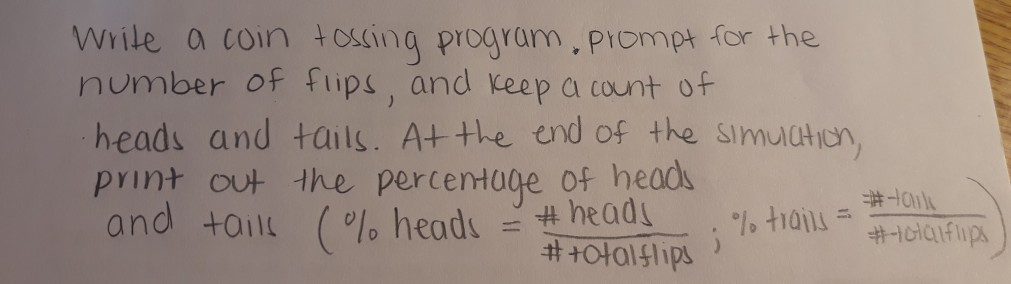 Write a coin tossing program. Prompt for the
number of flips, and keep a count of
heads and tails. At the end of the simulation,
print out the percentage of heads
and tails (% heads = # heads / # total flips ; % trails = # tails / # total flips)